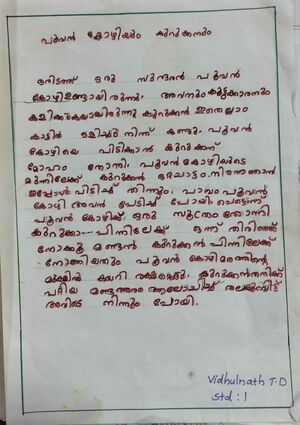 പൂവൻ കോഴിയും കുറുക്കനും
ഒരിടത്ത് ഒരു സുന്ദരൻ പൂവൻ
കോഴിഉണ്ടായിരുന്നു. അവനും കൂട്ടുകാരനും
കളിക്കുകയായിരുന്നു കുറുക്കൻ ഇതെല്ലാം
കാട്ടിൽ ഒളിച്ചു നിന്ന് കണ്ടു. പൂവൻ
കോഴിയെ പിടിക്കാൻ കുറുക്കന്
മോഹം തോന്നി. പൂവൻ കോഴിയുടെ
മുന്നിലേക്ക് കുറുക്കൻ ഒറ്റചാട്ടം. നിന്നെഞാൻ
ഇപ്പോൾ പിടിച്ച് തിന്നും. പാവം പൂവൻ
കോഴി അവൻ പേടിച്ച് പോയി. പെട്ടെന്ന്
പൂവൻ കോഴിക്ക് ഒരു സൂത്രം തോന്നി
കുറുക്കാ പിന്നിലേക്ക് ഒന്ന് തിരിഞ്ഞ്
നോക്കൂ മണ്ടൻ കുറുക്കൻ പിന്നിലേക്ക്
നോക്കിയതും പൂവൻ കോഴി മരത്തിൻ്റെ
മുകളിൽ കയറി രക്ഷപ്പെട്ടു. കുറുക്കൻതനിക്ക്
പറ്റിയ മണ്ടത്തരം ആലോചിച്ച് തലകുമ്പിട്ട്
അവിടെ നിന്നും പോയി.
Vidhulnath T.D
Std : 1